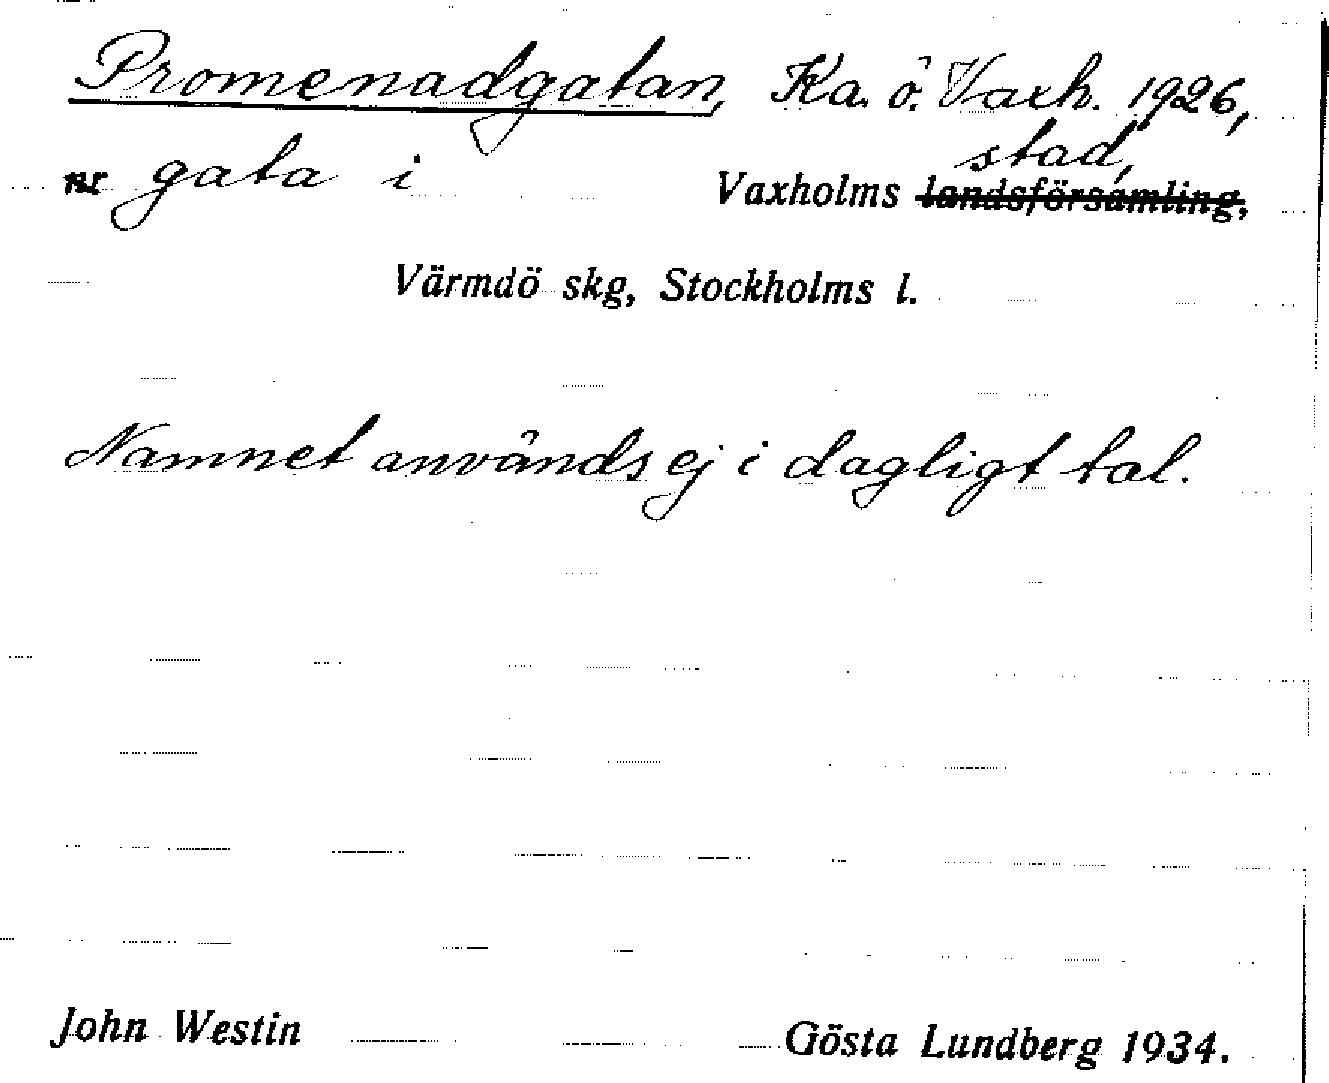 Promenadgatan, Ka. ö. Vaxh. 1926,
stad,
nr gata i Vaxholms landsförsamling,
Värmdö skg, Stockholms l.
Namnet används ej i dagligt tal.
John Westin Gösta Lundberg 1934.